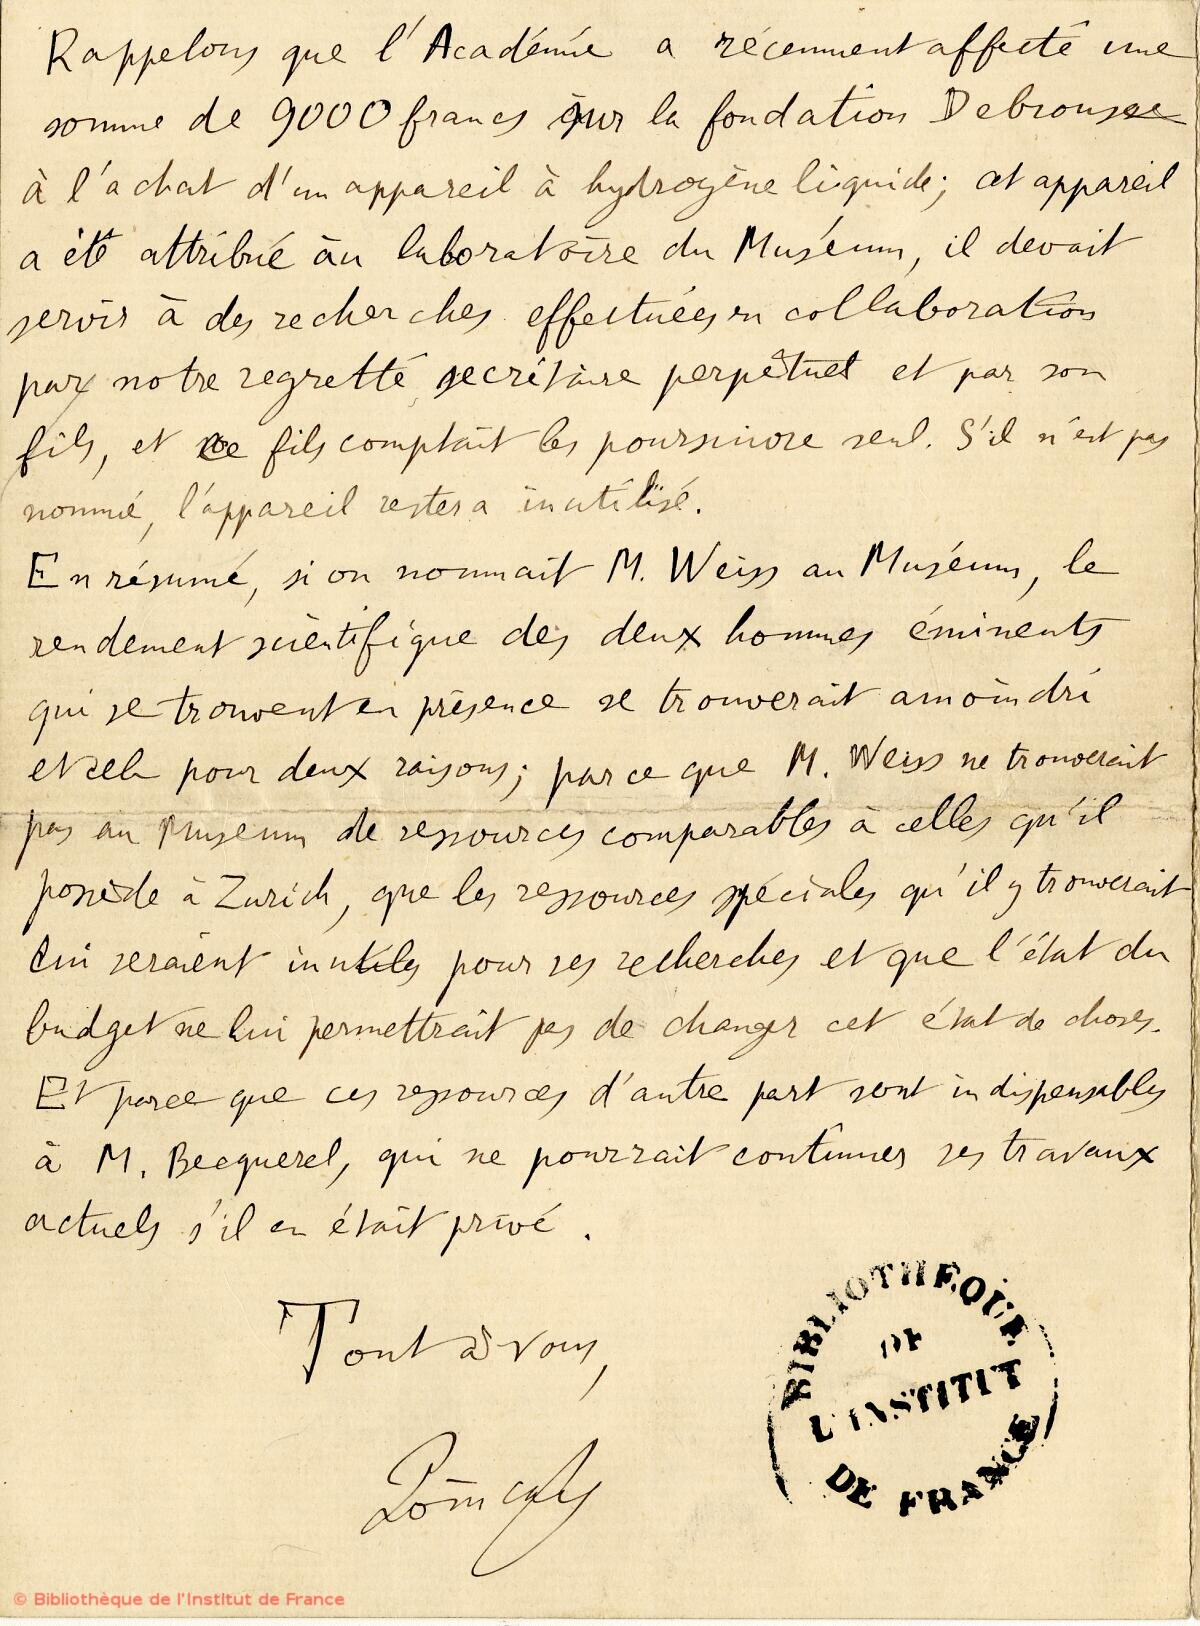 Rappelons que l'Académie a récemment affecté une
somme de 9000 francs sur la fondation Debrousse
à l'achat d'un appareil à hydrogène liquide; cet appareil
a été attribué au laboratoire du Muséum, il devait
servir à des recherches effectuées en collaboration
par notre regretté secrétaire perpétuel et par son
fils, et ce fils comptait les poursuivre seul. S'il n'est pas
nommé, l'appareil restera inutilisé.
En résumé, si on nommait M. Weiss au Muséum, le
rendement scientifique des deux hommes éminents
qui se trouvent en présence se trouverait amoindri
et cela pour deux raisons; parce que M. Weiss ne trouverait
pas au Museum de ressources comparables à celles qu'il
possède à Zurich, que les ressources spéciales qu'il y trouverait
lui seraient inutiles pour ses recherches et que l'état du
budget ne lui permettrait pas de changer cet état de choses.
Et parce que ces ressources d'autre part sont indispensables
à M. Becquerel, qui ne pourrait continuer ses travaux
actuels s'il en était privé.
Tout à vous,
Poincaré
BIBLIOTHEQUE
DE
L'INSTITUT
DE FRANCE
© Bibliothèque de l'Institut de France